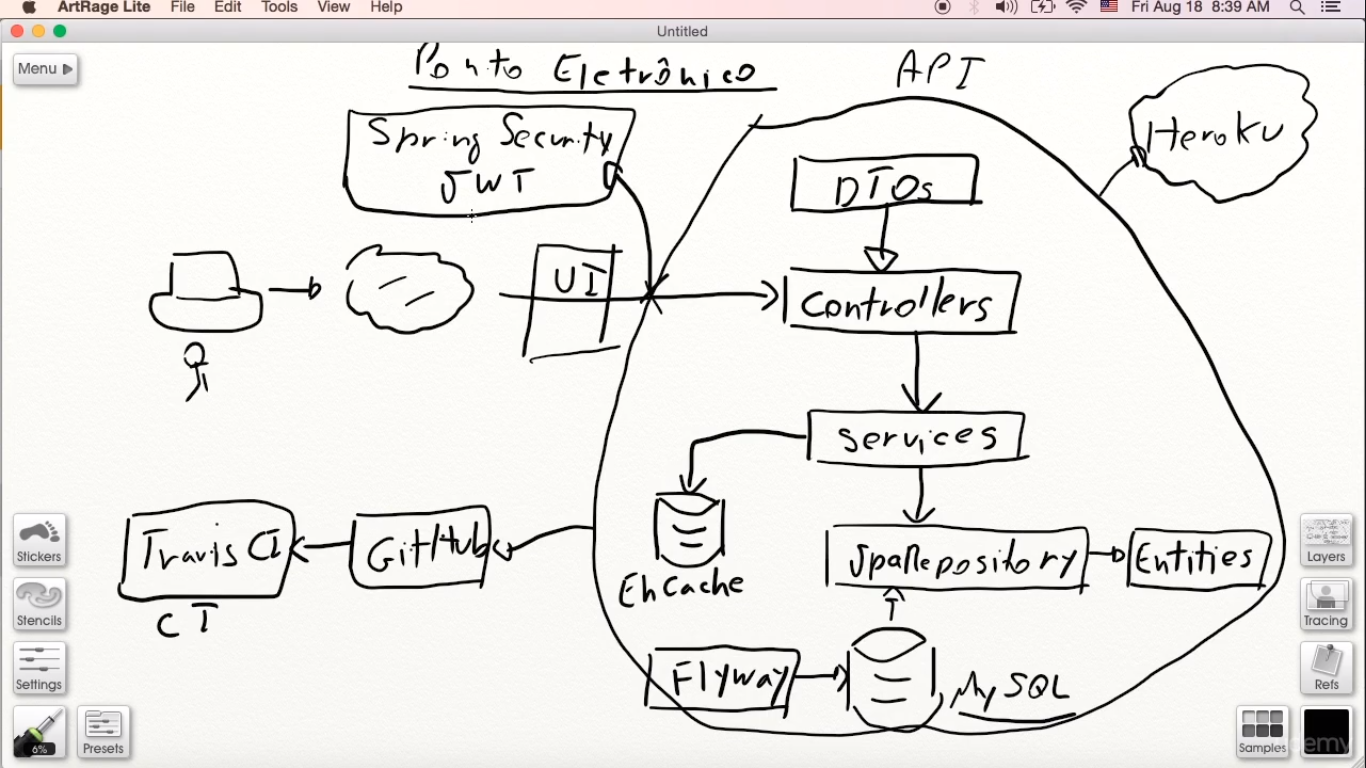 ArtRage Lite File Edit Tools View Help Fri Aug 18 8:39 AM
Untitled
Menu
Ponto Eletrônico
API
Spring Security
JWT
Heroku
DTOs
UI
Controllers
Services
Travis CI
GitHub
JpaRepository
Entities
EhCache
CI
Flyway
MySQL
Stickers
Stencils
Settings
6%
Presets
Layers
Tracing
Refs
Samples
udemy